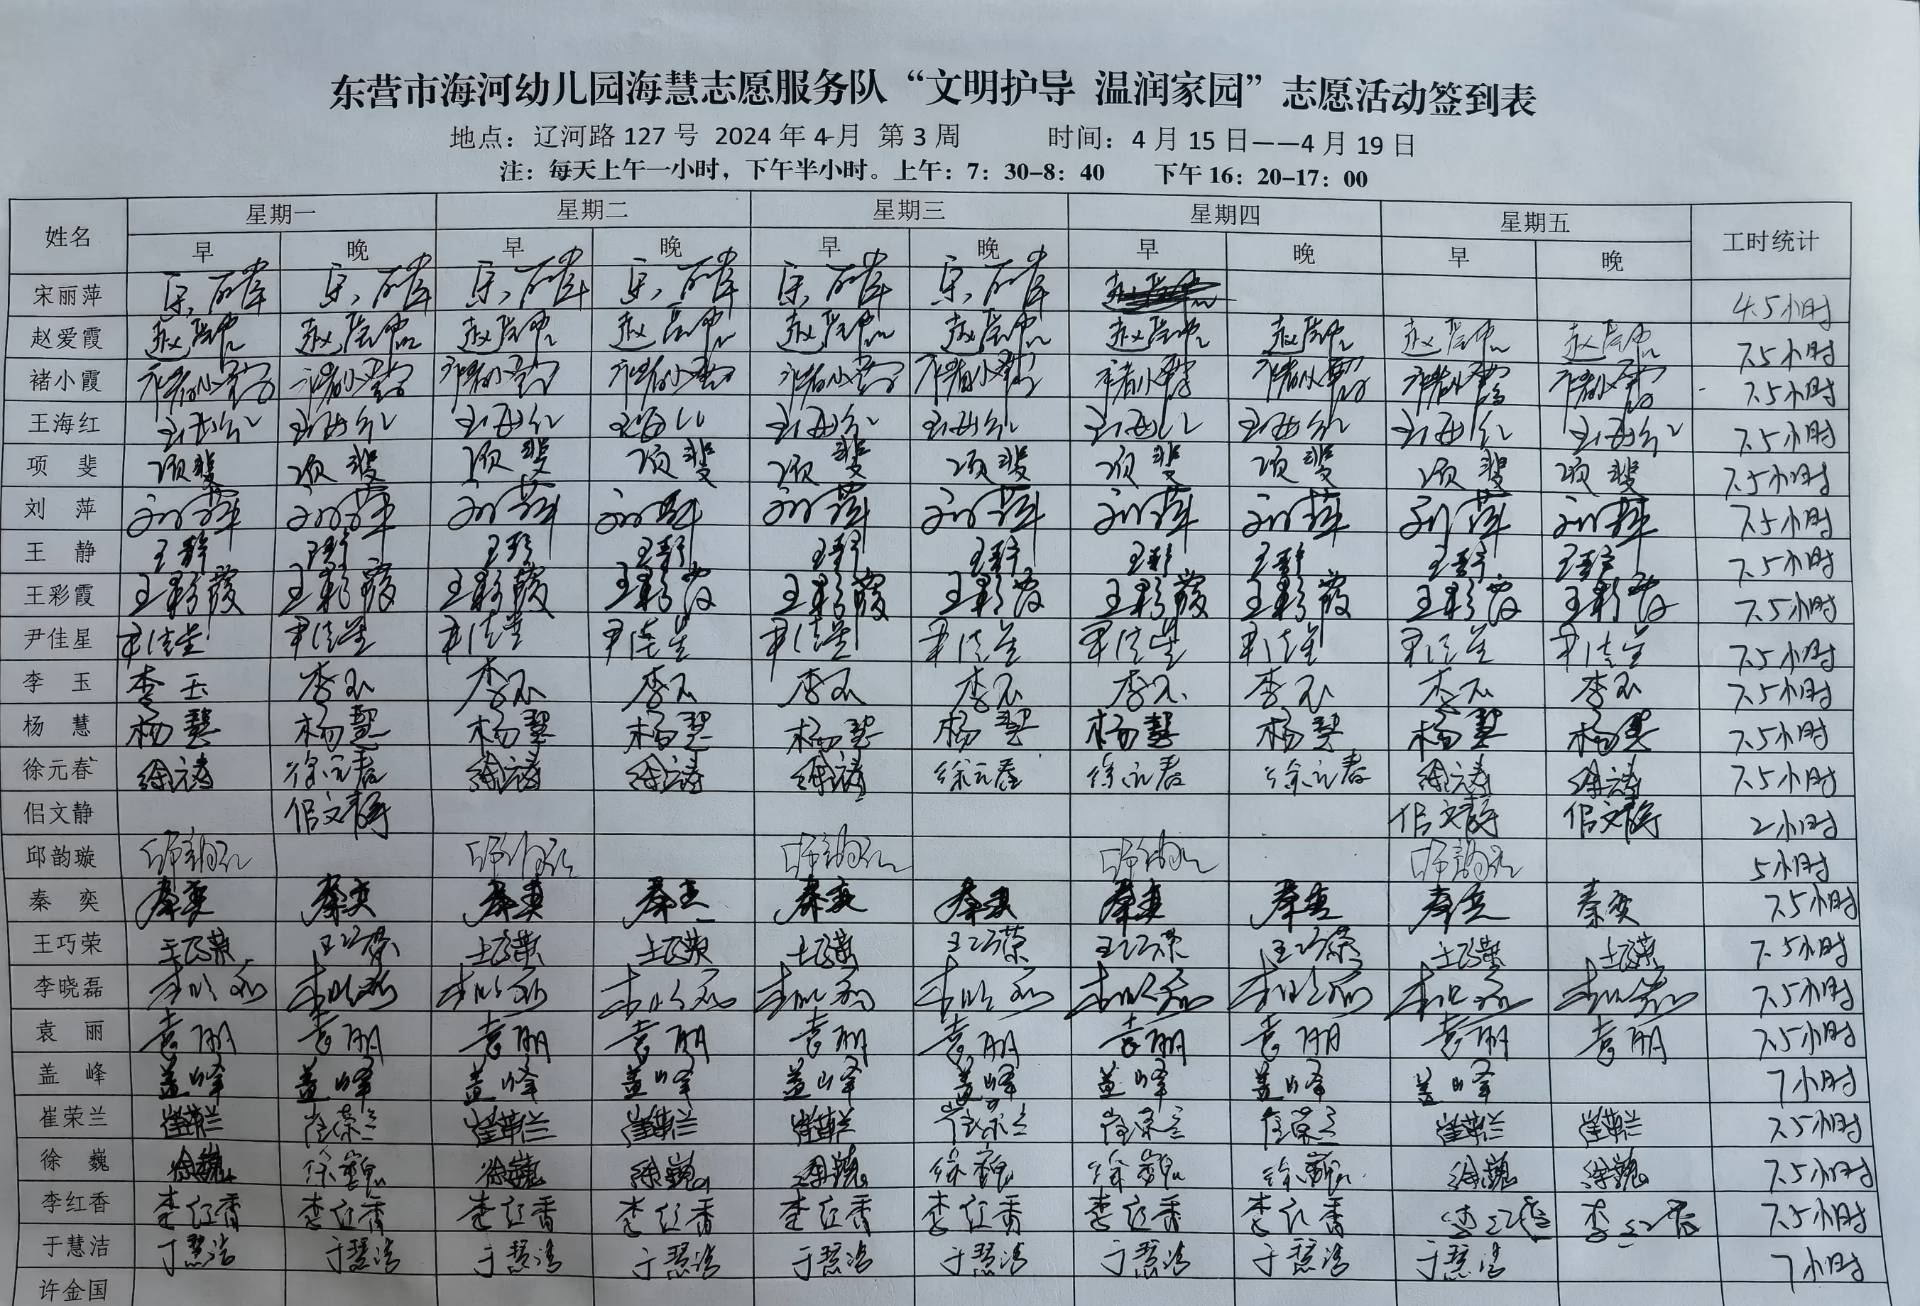 东营市海河幼儿园海慧志愿服务队“文明护导 温润家园”志愿活动签到表
地点：辽河路 127 号 2024 年 4月 第 3 周 时间：4 月 15 日——4 月 19 日
注：每天上午一小时，下午半小时。上午：7：30-8：40 下午 16：20-17：00
姓名 星期一 星期二 星期三 星期四 星期五 工时统计
早 晚 早 晚 早 晚 早 晚 早 晚
宋丽萍 宋丽萍 宋丽萍 宋丽萍 宋丽萍 宋丽萍 宋丽萍 4.5小时
赵爱霞 赵爱霞 赵爱霞 赵爱霞 赵爱霞 赵爱霞 赵爱霞 赵爱霞 赵爱霞 赵爱霞 赵爱霞 7.5小时
褚小霞 褚小霞 褚小霞 褚小霞 褚小霞 褚小霞 褚小霞 褚小霞 褚小霞 褚小霞 褚小霞 7.5小时
王海红 王海红 王海红 王海红 王海红 王海红 王海红 王海红 王海红 王海红 王海红 7.5小时
项 斐 项斐 项斐 项斐 项斐 项斐 项斐 项斐 项斐 项斐 项斐 7.5小时
刘 萍 刘萍 刘萍 刘萍 刘萍 刘萍 刘萍 刘萍 刘萍 刘萍 刘萍 7.5小时
王 静 王静 王静 王静 王静 王静 王静 王静 王静 王静 王静 7.5小时
王彩霞 王彩霞 王彩霞 王彩霞 王彩霞 王彩霞 王彩霞 王彩霞 王彩霞 王彩霞 王彩霞 7.5小时
尹佳星 尹佳星 尹佳星 尹佳星 尹佳星 尹佳星 尹佳星 尹佳星 尹佳星 尹佳星 尹佳星 7.5小时
李 玉 李玉 李玉 李玉 李玉 李玉 李玉 李玉 李玉 李玉 李玉 7.5小时
杨 慧 杨慧 杨慧 杨慧 杨慧 杨慧 杨慧 杨慧 杨慧 杨慧 杨慧 7.5小时
徐元春 徐元春 徐元春 徐元春 徐元春 徐元春 徐元春 徐元春 徐元春 徐元春 徐元春 7.5小时
佀文静 佀文静 佀文静 佀文静 2小时
邱韵璇 邱韵璇 邱韵璇 邱韵璇 邱韵璇 邱韵璇 5小时
秦 奕 秦奕 秦奕 秦奕 秦奕 秦奕 秦奕 秦奕 秦奕 秦奕 秦奕 7.5小时
王巧荣 王巧荣 王巧荣 王巧荣 王巧荣 王巧荣 王巧荣 王巧荣 王巧荣 王巧荣 王巧荣 7.5小时
李晓磊 李晓磊 李晓磊 李晓磊 李晓磊 李晓磊 李晓磊 李晓磊 李晓磊 李晓磊 李晓磊 7.5小时
袁 丽 袁丽 袁丽 袁丽 袁丽 袁丽 袁丽 袁丽 袁丽 袁丽 袁丽 7.5小时
盖 峰 盖峰 盖峰 盖峰 盖峰 盖峰 盖峰 盖峰 盖峰 盖峰 7小时
崔荣兰 崔荣兰 崔荣兰 崔荣兰 崔荣兰 崔荣兰 崔荣兰 崔荣兰 崔荣兰 崔荣兰 崔荣兰 7.5小时
徐 巍 徐巍 徐巍 徐巍 徐巍 徐巍 徐巍 徐巍 徐巍 徐巍 徐巍 7.5小时
李红香 李红香 李红香 李红香 李红香 李红香 李红香 李红香 李红香 李红香 李红香 7.5小时
于慧洁 于慧洁 于慧洁 于慧洁 于慧洁 于慧洁 于慧洁 于慧洁 于慧洁 于慧洁 7小时
许金国